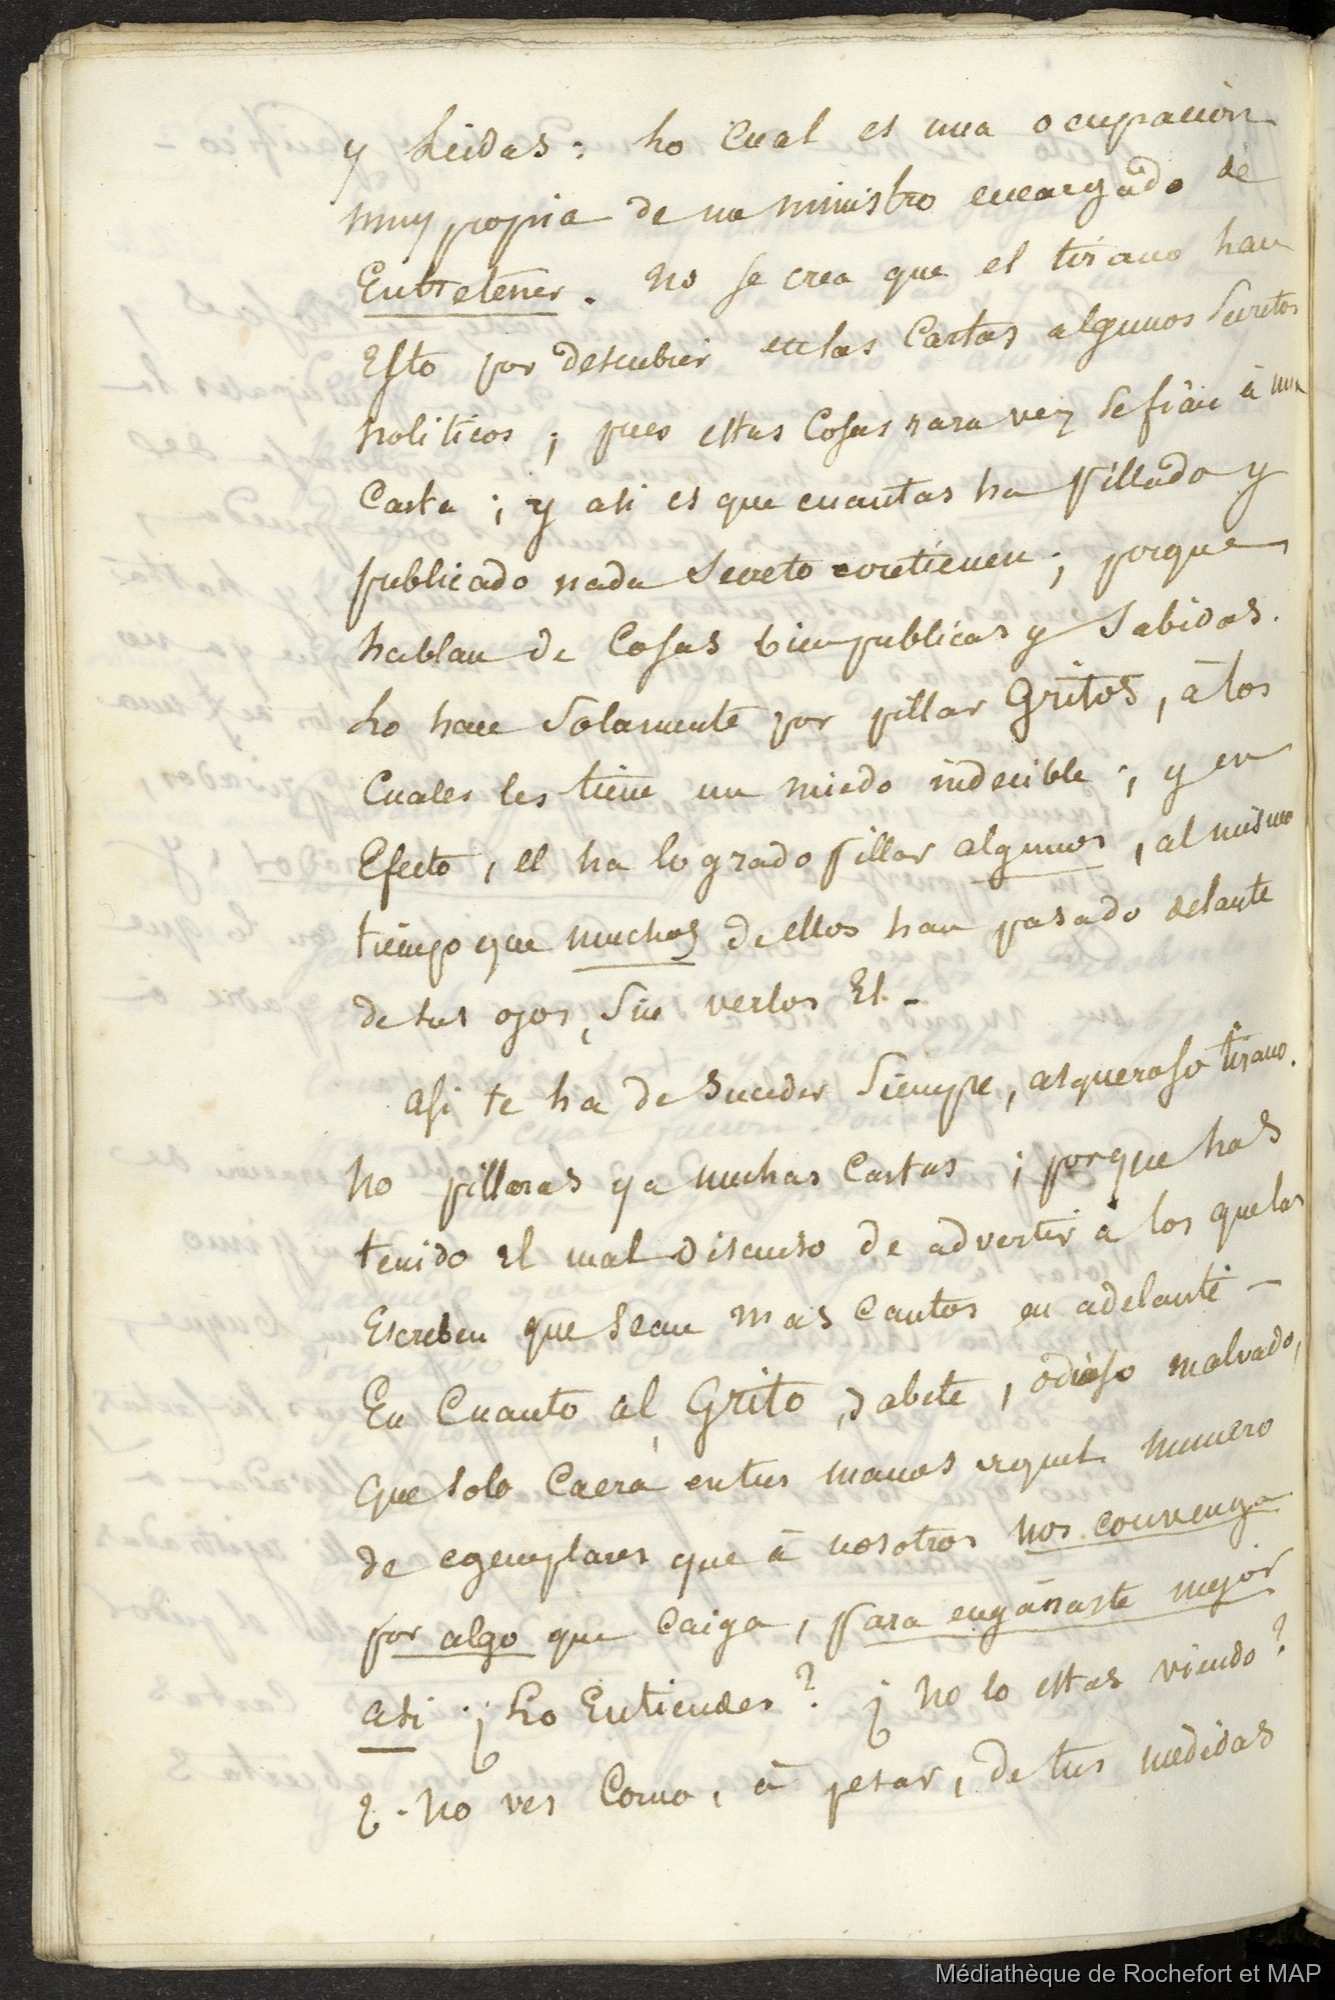 y Leidas: Lo Cual es una ocupacion
muy propia de un ministro encargado de
Entretener. No se crea que el tirano hace
Esto por descubrir en las Cartas algunos Secretos
politicos; pues estas Cosas rara vez se fian à una
Carta; y asi es que cuantas ha pillado y
publicado nada Secreto contienen; porque
hablan de Cosas bien publicas y Sabidas.
Lo hace Solamente por pillar Gritos, à los
Cuales les tiene un miedo indecible; y en
Efecto, el ha logrado pillar algunos, al mismo
tiempo que muchos de ellos han pasado delante
de sus ojos, Sin verlos El.-
Asi te ha de Suceder Siempre, asqueroso tirano.
No pillaras ya muchas Cartas; porque has
tenido el mal Discurso de advertir à los que las
Escriben que Sean mas Cautos en adelante-
En Cuanto al Grito, Sabete, odioso malvado,
que solo Caerá en tus manos aquel numero
de egemplares que à nosotros nos convenga
por algo que Caiga, para engañarte mejor
asi ¿Lo Entiendes? ¿No lo estas viendo?
¿-No ves Como, à pesar, de tus medidas
Médiathèque de Rochefort et MAP